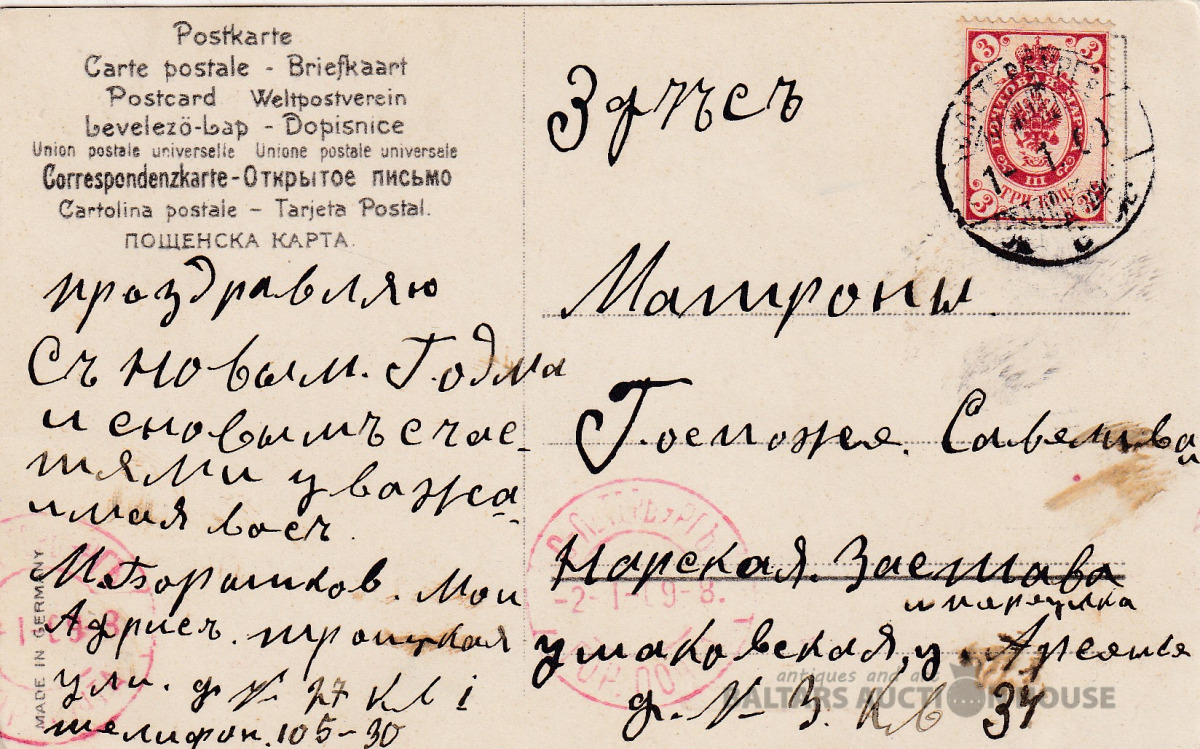 Postkarte
Carte postale - Briefkaart
Postcard Weltpostverein
Levelező-Lap - Dopisnice
Union postale universelle Unione postale universale
Correspondenzkarte - Открытое письмо
Cartolina postale - Tarjeta Postal.
ПОЩЕНСКА КАРТА.
проздравляю
Съ новым. Годма
и сновымъ счас-
тями уважа-
имая васъ
Мои
Адрисъ. троицкая
ули. д № 27 кв 1
телифон. 105-30
MADE IN GERMANY
3 3
ПОЧТОВАЯ МАРКА
III
3 3
Здѣсъ
Матроны.
Госпоже. Савелива
Нарская. Застава
ушаковская, у.
д. № 3. кв 34
С-ПЕТЕРБУРГЪ
-2-1-09-8.
antiques and art
BALTARS AUCTION HOUSE